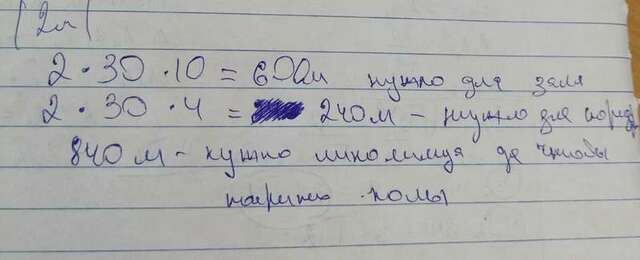 2 · 30 · 10 = 600м нужно для зала
2 · 30 · 4 = 240м - нужно для корид
840м - нужно линолиума чтобы
покрыть полы